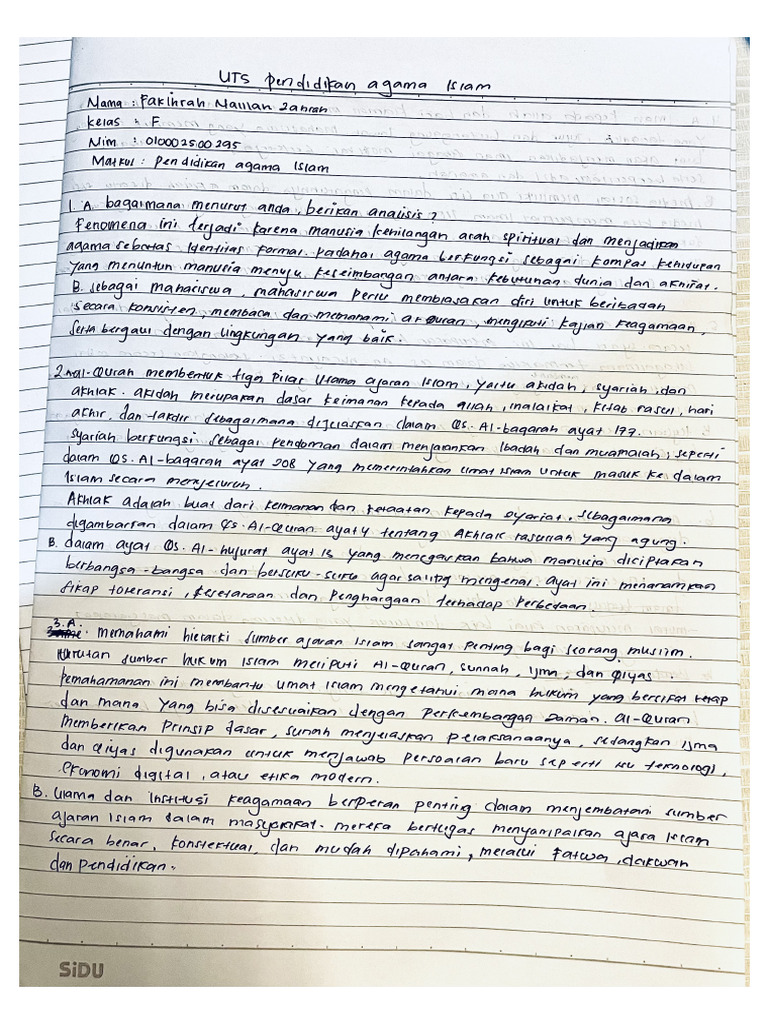 UTS pendidikan agama Islam
Nama : Fakihrah Nailah Zahrah
Kelas : F
Nim : 010002500295
Matkul : Pendidikan agama Islam
1. A. bagaimana menurut anda, berikan analisis?
Fenomena ini terjadi karena manusia kehilangan arah spiritual dan menjadikan
agama sebatas Identitas Formal. padahal agama berfungsi sebagai kompas kehidupan
yang menuntun manusia menuju keseimbangan antara kebutuhan dunia dan akhirat.
B. sebagai mahasiswa, mahasiswa perlu membiasakan diri untuk beribadah
secara konsisten, membaca dan memahami al-Quran, mengikuti kajian keagamaan,
serta bergaul dengan lingkungan yang baik.
2. al-Quran membentuk tiga Pilar Utama ajaran Islam, yaitu akidah, syariah, dan
akhlak. akidah merupakan dasar keimanan kepada allah, malaikat, kitab rasul, hari
akhir, dan takdir sebagaimana dijelaskan dalam QS. Al-baqarah ayat 177.
syariah berfungsi sebagai pendoman dalam menjalankan Ibadah dan muamalah, seperti
dalam QS. Al-baqarah ayat 208 yang memerintahkan umat Islam untuk masuk ke dalam
Islam secara menyeluruh.
Akhlak adalah buat dari keimanan dan ketaatan kepada syariat. sebagaimana
digambarkan dalam QS. Al-Quran ayat 4 tentang Akhlak rasullah yang agung.
B. dalam ayat QS. Al-hujurat ayat 13 yang menegaskan bahwa manusia diciptakan
berbangsa-bangsa dan bersuku-suku agar saling mengenal. ayat ini menanamkan
sikap toleransi, kesetaraan dan penghargaan terhadap perbedaan.
3. A. memahami hierarki sumber ajaran Islam sangat penting bagi seorang muslim.
urutan sumber hukum Islam meliputi Al-Quran, sunnah, ijma, dan Qiyas.
Pemahamanan ini membantu umat Islam mengetahui mana hukum yang bersifat tetap
dan mana yang bisa disesuaikan dengan perkembangan zaman. al-Quran
memberikan Prinsip dasar, sunah menjelaskan pelaksanaanya, sedangkan ijma
dan qiyas digunakan untuk menjawab persoalan baru seperti isu teknologi,
ekonomi digital, atau etika modern.
B. Ulama dan Institusi keagamaan berperan penting dalam menjembatani sumber
ajaran Islam dalam masyarakat. mereka bertugas menyampaikan ajara Islam
secara benar, konstektual, dan mudah dipahami, melalui Fatwa, dakwah
dan pendidikan.
SiDU